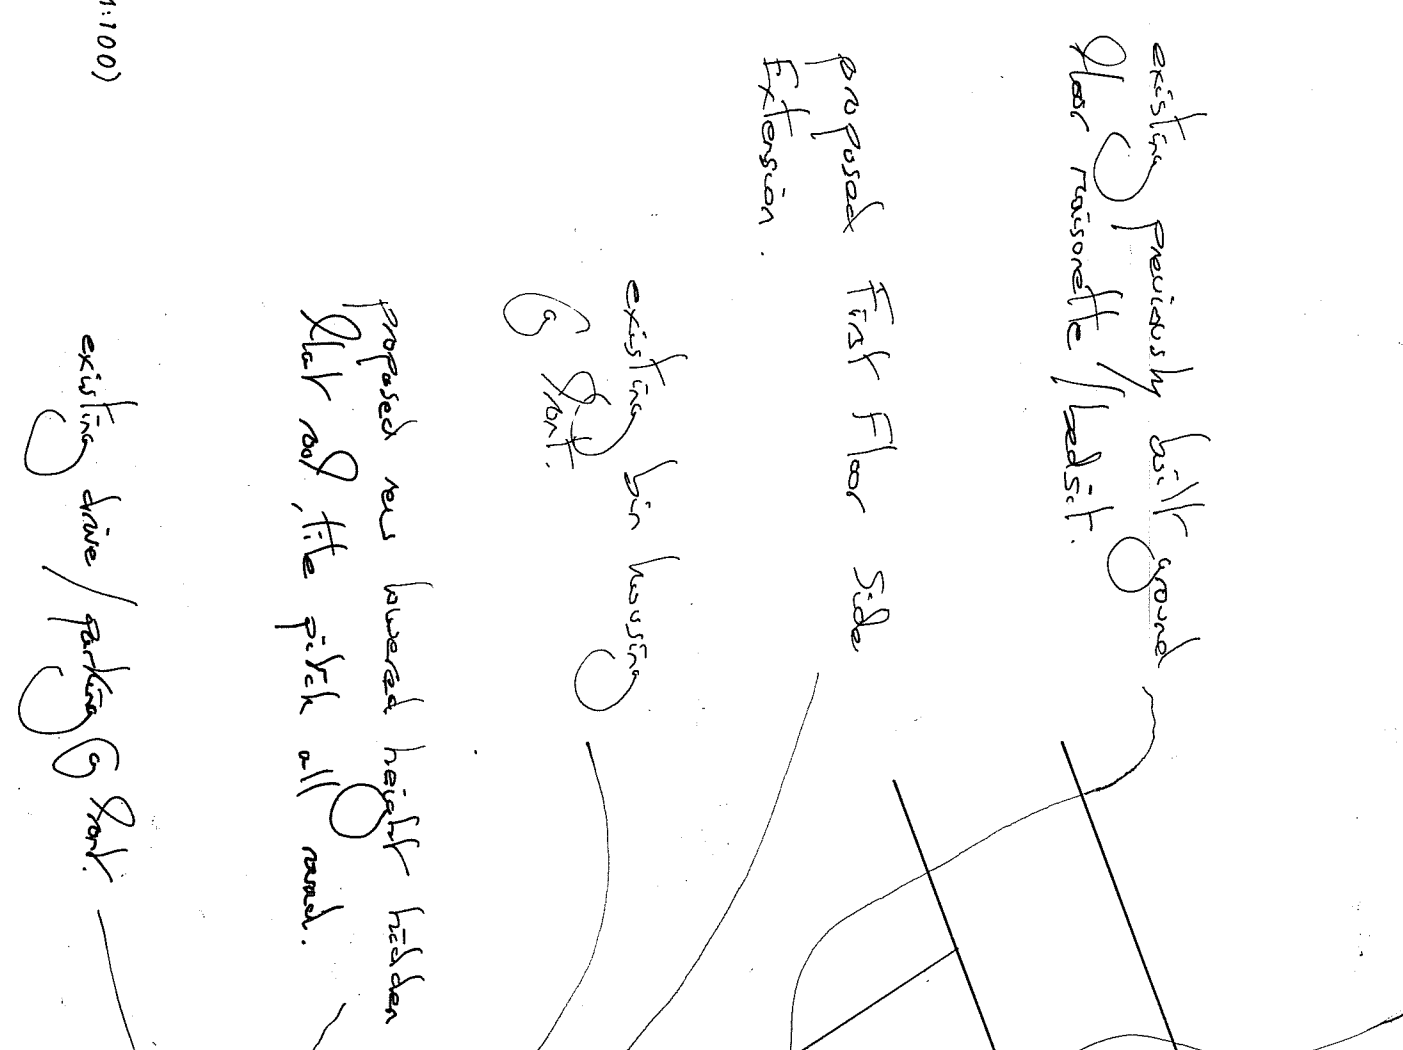 existing previously built ground
floor maisonette / bedsit.
proposed First Floor Side
Extension.
existing bin housing
@ front.
proposed new lowered height hidden
flat roof, tile pitch all round.
existing drive / parking @ front.
1:100)